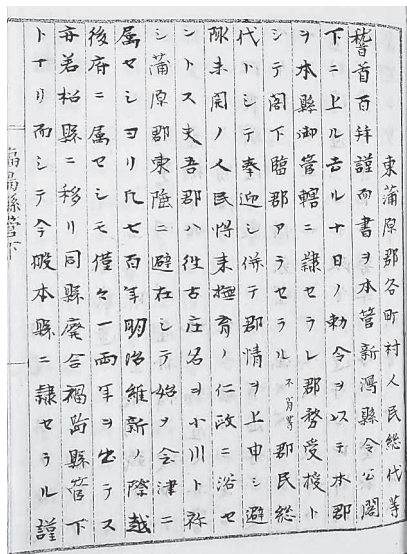 東蒲原郡各町村人民総代等
稽首百拝謹而書ヲ本管新潟縣令公閣
下ニ上ル去ル十日ノ勅令ヲ以テ本郡
ヲ本縣御管轄ニ隷セラレ郡務受授ト
シテ閣下臨郡アラセラル不肖等郡民総
代トシテ奉迎シ併テ郡情ヲ上申シ避
陬未開ノ人民将来撫育ノ仁政ニ浴セ
ントス夫吾郡ハ往古庄名ヲ小川ト称
シ蒲原郡東陲ニ避在シテ始メ会津ニ
属セシヨリ凡七百年明治維新ノ際越
後府ニ属セシモ僅々一両年ヲ出テス
再若松縣ニ移リ同縣廃合福島縣管下
トナリ而シテ今般本縣ニ隷セラル謹
福島縣管下